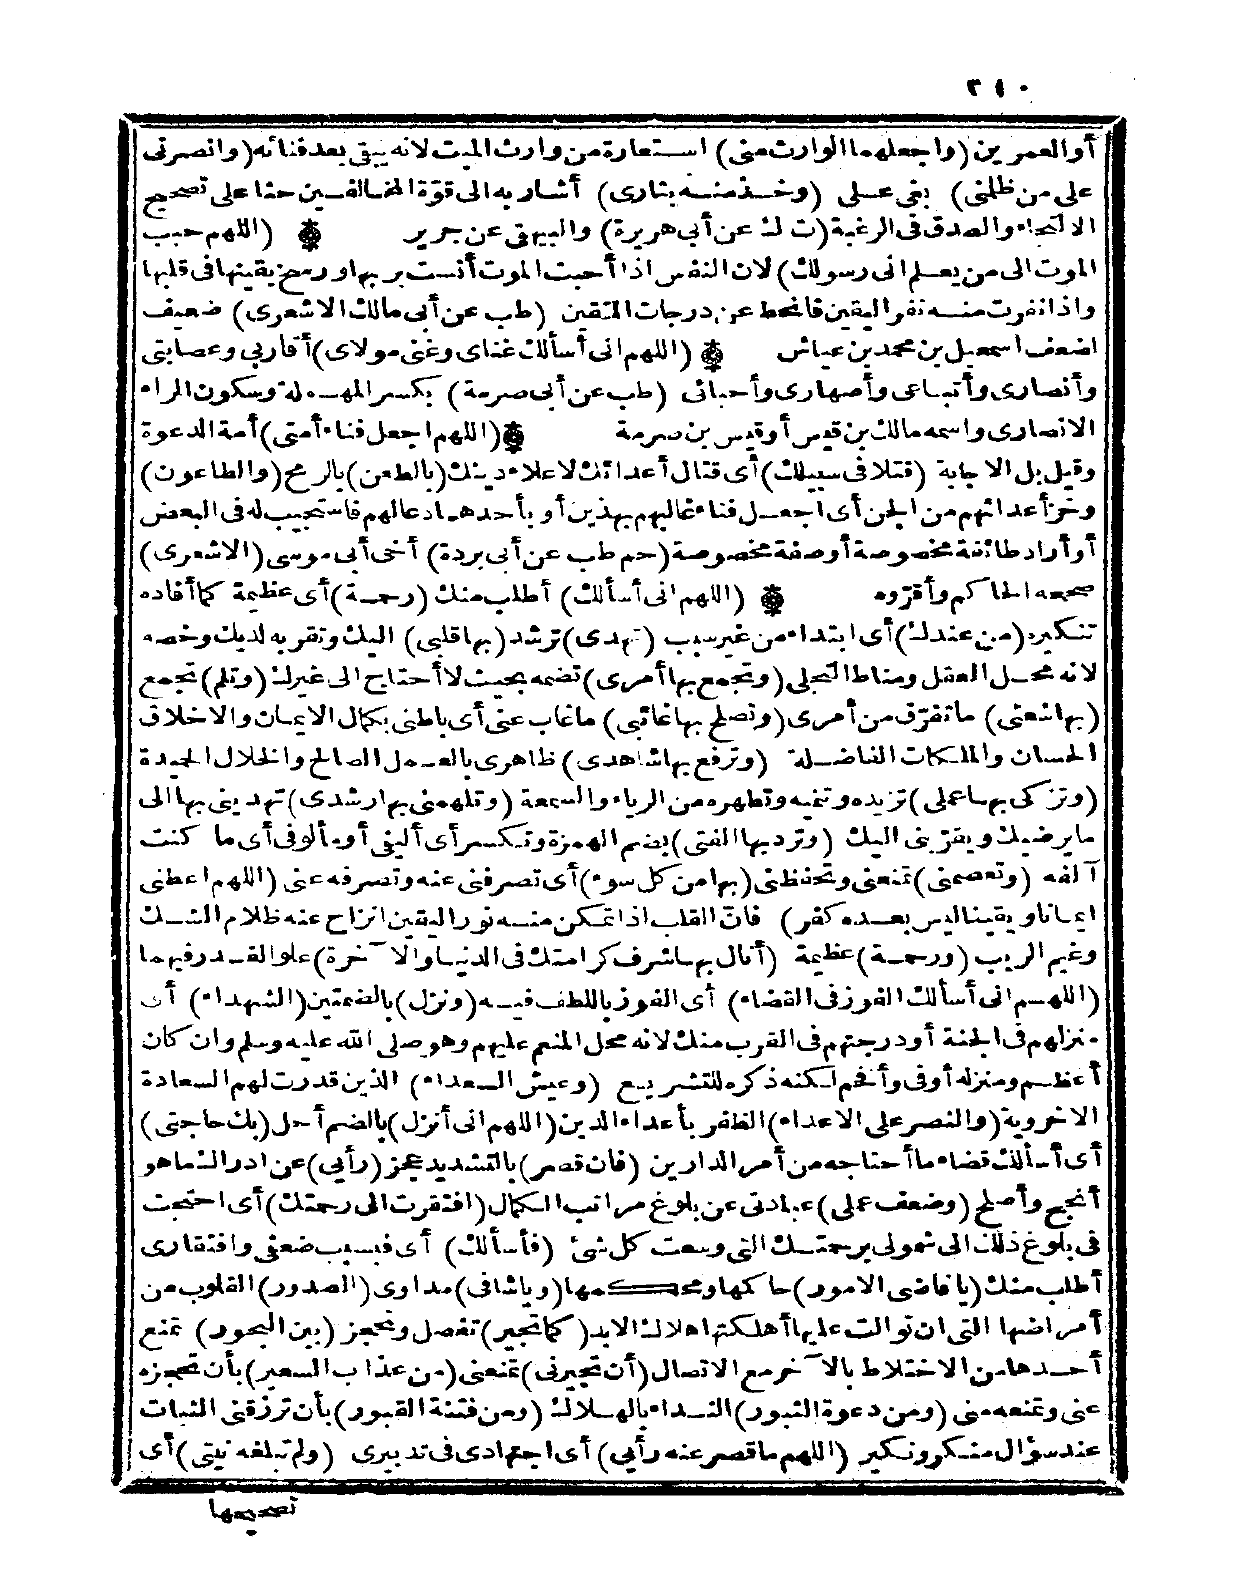 ٢١٠
أو العمرين (واجعلهما الوارث منى) استعارة من وارث الميت لانه يبقى بعد فنائه (وانصرنى
على من ظلمنى) بغى عـلى (وخـذ منـه بثارى) أشار به الى قوّة المخـالفـين حثا على تصحيح
الالتجاء والصدق فى الرغبة (ت ك عن أبى هريرة) والبيهقى عن جرير ۞ (اللهم حبب
الموت الى من يعـلم انى رسولك) لان النفس اذا أحبت الموت أنست بربها ورسخ يقينها فى قلبها
واذا نفرت منـه نفر اليقين فانحط عن درجات المتقين (طب عن أبى مالك الاشعرى) ضعيف
لضعف اسمعيل بن محمد بن عياش ۞ (اللهم انى أسألك غناى وغنى مولاى) أقاربى وعصابتى
وأنصارى وأتباعى وأصهارى وأحبائى (طب عن أبى صرمة) بكسر المهـملة وسكون الراء
الانصارى واسمه مالك بن قيس أو قيس بن صرمة ۞ (اللهم اجعل فناء أمتى) أمة الدعوة
وقيل بل الاجابة (قتلا فى سبيلك) أى قتال أعدائك لاعلاء دينك (بالطعن) بالرمح (والطاعون)
وخز أعدائهم من الجن أى اجعـل فناء غالبهم بهذين أو بأحدهما دعا لهم فاستجيب له فى البعض
أو أراد طائفة مخصوصة أو صفة مخصوصة (حم طب عن أبى بردة) أخى أبى موسى (الاشعرى)
صححه الحاكم وأقرّوه ۞ (اللهم انى أسألك) أطلب منك (رحمـة) أى عظيمة كما أفاده
تنكيره (من عندك) أى ابتداء من غير سبب (تهدى) ترشد (بها قلبى) اليك وتقربه لديك وخصه
لانه محـل العقل ومناط التجلى (وتجمع بها أمرى) تضمه بحيث لا أحتاج الى غيرك (وتلم) تجمع
(بها شعثى) ما تفرّق من أمرى (وتصلح بها غائبى) ما غاب عنى أى باطنى بكمال الايمان والاخلاق
الحسان والملـكات الفاضـلة (وترفع بها شاهدى) ظاهرى بالعـمل الصالح والخلال الحميدة
(وتزكى بها عملى) تزيده وتنميه وتطهره من الرياء والسمعة (وتلهمنى بها رشدى) تهدينى بها الى
ما يرضيك ويقرّبنى اليك (وترد بها الفتى) بضم الهمزة وتكسر أى أليفى أو مألوفى أى ما كنت
آلفه (وتعصمنى) تمنعنى وتحفظنى (بها من كل سوء) أى تصرفنى عنه وتصرفه عنى (اللهم اعطنى
ايمانا ويقينا ليس بعـده كفر) فانّ القلب اذا تمكن منـه نور اليقين انزاح عنه ظلام الشـك
وغيم الريب (ورحمـة) عظيمة (أنال بها شرف كرامتك فى الدنيا والآخرة) علو القـدر فيهما
(اللهـم انى أسألك الفوز فى القضاء) أى الفوز باللطف فيـه (ونزل) بالضمتين (الشهداء) أى
منزلهم فى الجنة أو درجتهم فى القرب منك لانه محل المنعم عليهم وهو صلى الله عليه وسلم وان كان
أعظـم ومنزله أوفى وأفخم لـكنه ذكره للتشريع (وعيش السـعداء) الذين قدرت لهم السعادة
الاخروية (والنصر على الاعداء) الظفر بأعداء الدين (اللهم انى أنزل) بالضم أحل (بك حاجتى)
أى أسألك قضاء ما أحتاجه من أمر الدارين (فان قصر) بالتشديد عجز (رأيى) عن ادراك ما هو
أنجح وأصلح (وضعف عملى) عبادتى عن بلوغ مراتب الـكمال (افتقرت الى رحمتك) أى احتجت
فى بلوغ ذلك الى شمولى برحمتـك التى وسعت كل شئ (فأسألك) أى فبسبب ضعفى وافتقارى
أطلب منك (يا قاضى الامور) حاكمها ومحـكمها (ويا شافى) مداوى (الصدور) القلوب من
أمراضها التى ان توالت عليها أهلكتها هلاك الابد (كما تجير) تفصل وتحجز (بين البحور) تمنع
أحـدها من الاختلاط بالآخر مع الاتصال (أن تجيرنى) تمنعنى (من عذاب السعير) بأن تحجزه
عنى وتمنعه منى (ومن دعوة الثبور) النـداء بالهـلاك (ومن فتنة القبور) بأن ترزقنى الثبات
عند سؤال منـكر ونـكير (اللهم ما قصر عنه رأيى) أى اجتهادى فى تدبيرى (ولم تبلغه نيتى) أى
تصحيحها